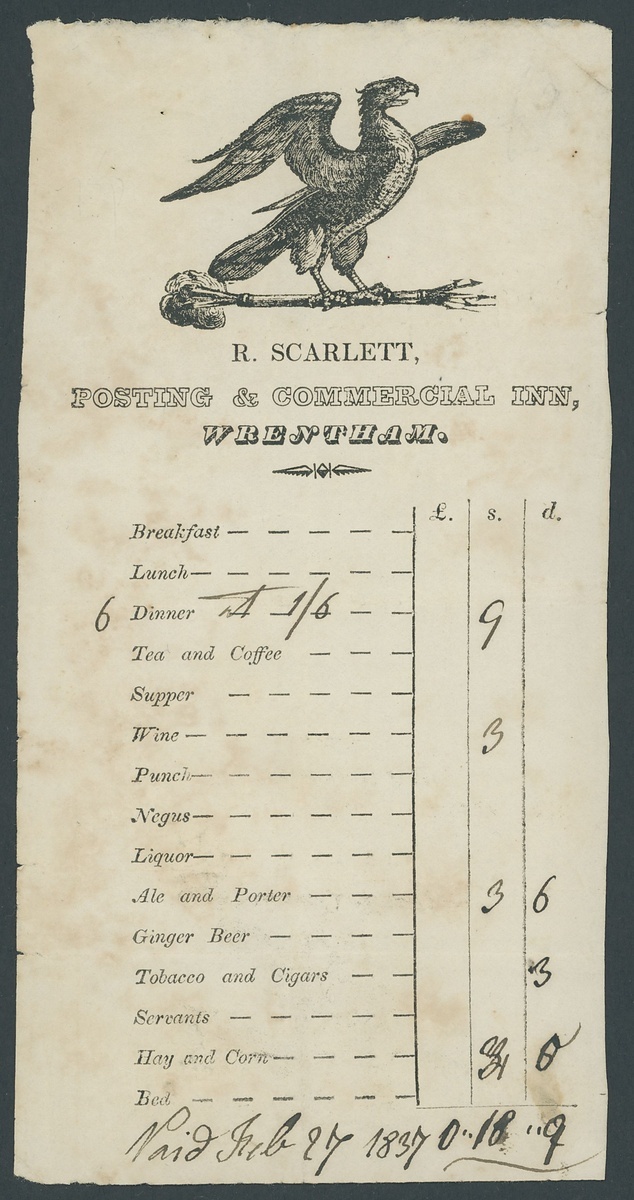 R. SCARLETT,
POSTING & COMMERCIAL INN,
WRENTHAM.
£. s. d.
Breakfast
Lunch
6 Dinner At 1/6 9
Tea and Coffee
Supper
Wine 3
Punch
Negus
Liquor
Ale and Porter 3 6
Ginger Beer
Tobacco and Cigars 3
Servants
Hay and Corn 3 0
Bed
Paid Feb 27 1837 0..18..9